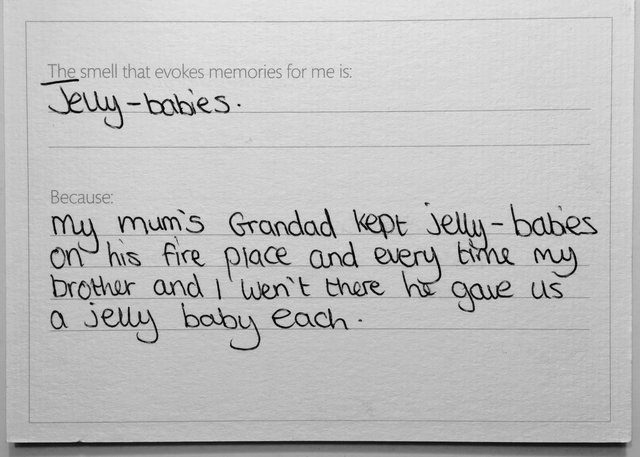 The smell that evokes memories for me is:
Jelly-babies.
Because:
My mum's Grandad kept jelly-babies
on his fire place and every time my
brother and I wen't there he gave us
a jelly baby each.